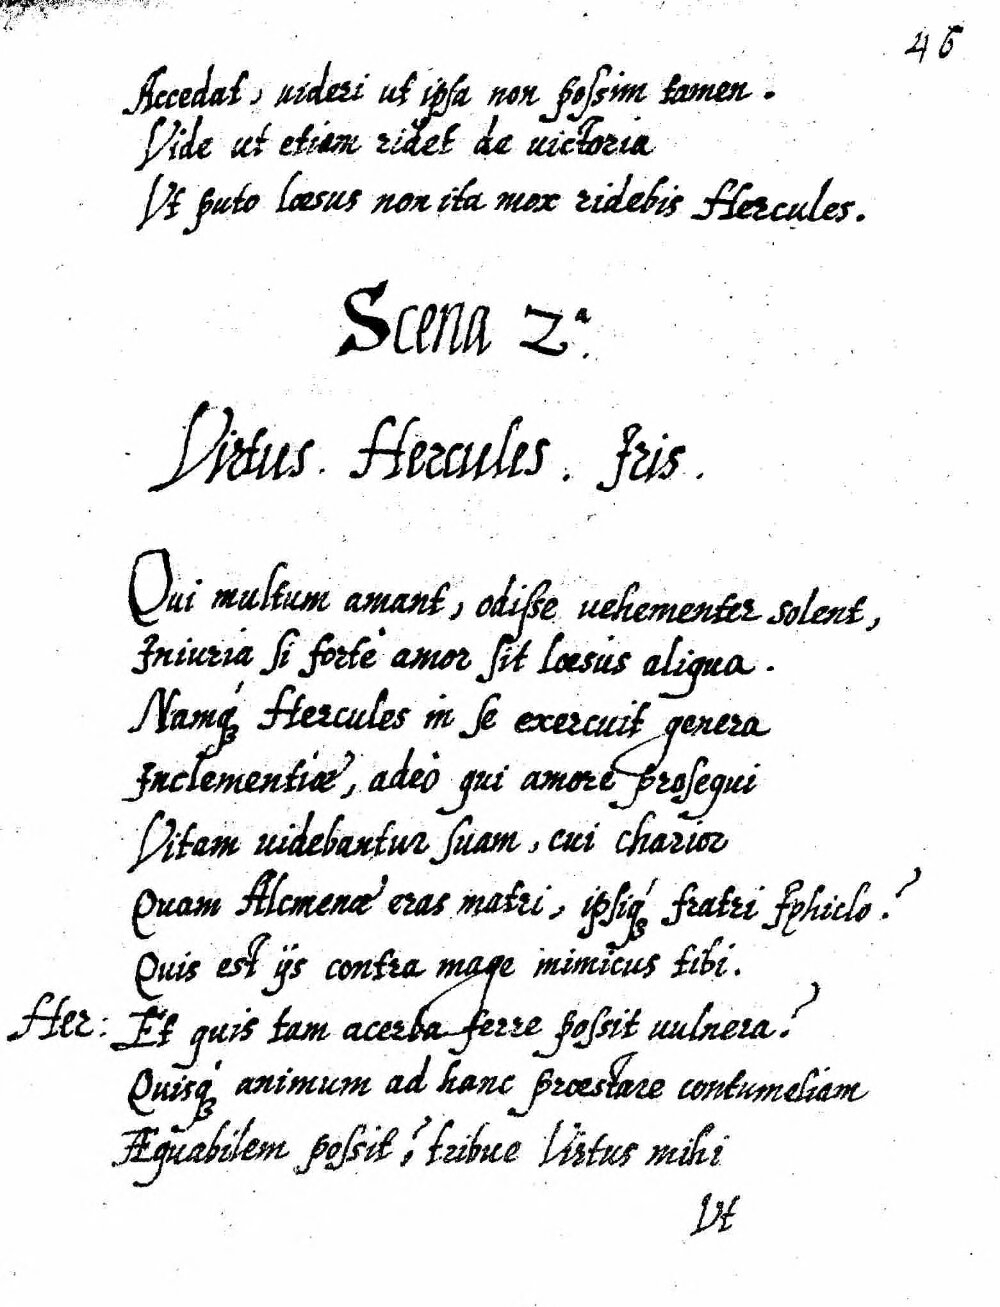 46
Accedat, uideri ut ipsa non possim tamen.
Vide ut etiam ridet de uictoria
Vt puto læsus non ita mox ridebis Hercules.
Scena 2ª.
Virtus. Hercules. Iris.
Qui multum amant, odisse uehementer solent,
Iniuria si forte amor sit læsus aliqua.
Namq́ꝫ Hercules in se exercuit genera
Inclementiæ, adeò qui amore prosequi
Vitam uidebantur suam, cui charior
Quam Alcmenæ eras matri, ipsiq́ꝫ fratri Iphiclo?
Quis est ijs contra mage inimicus tibi.
Her: Et quis tam acerba ferre possit uulnera?
Quisq́ꝫ animum ad hanc præstare contumeliam
Æquabilem possit? tribue Virtus mihi
Vt